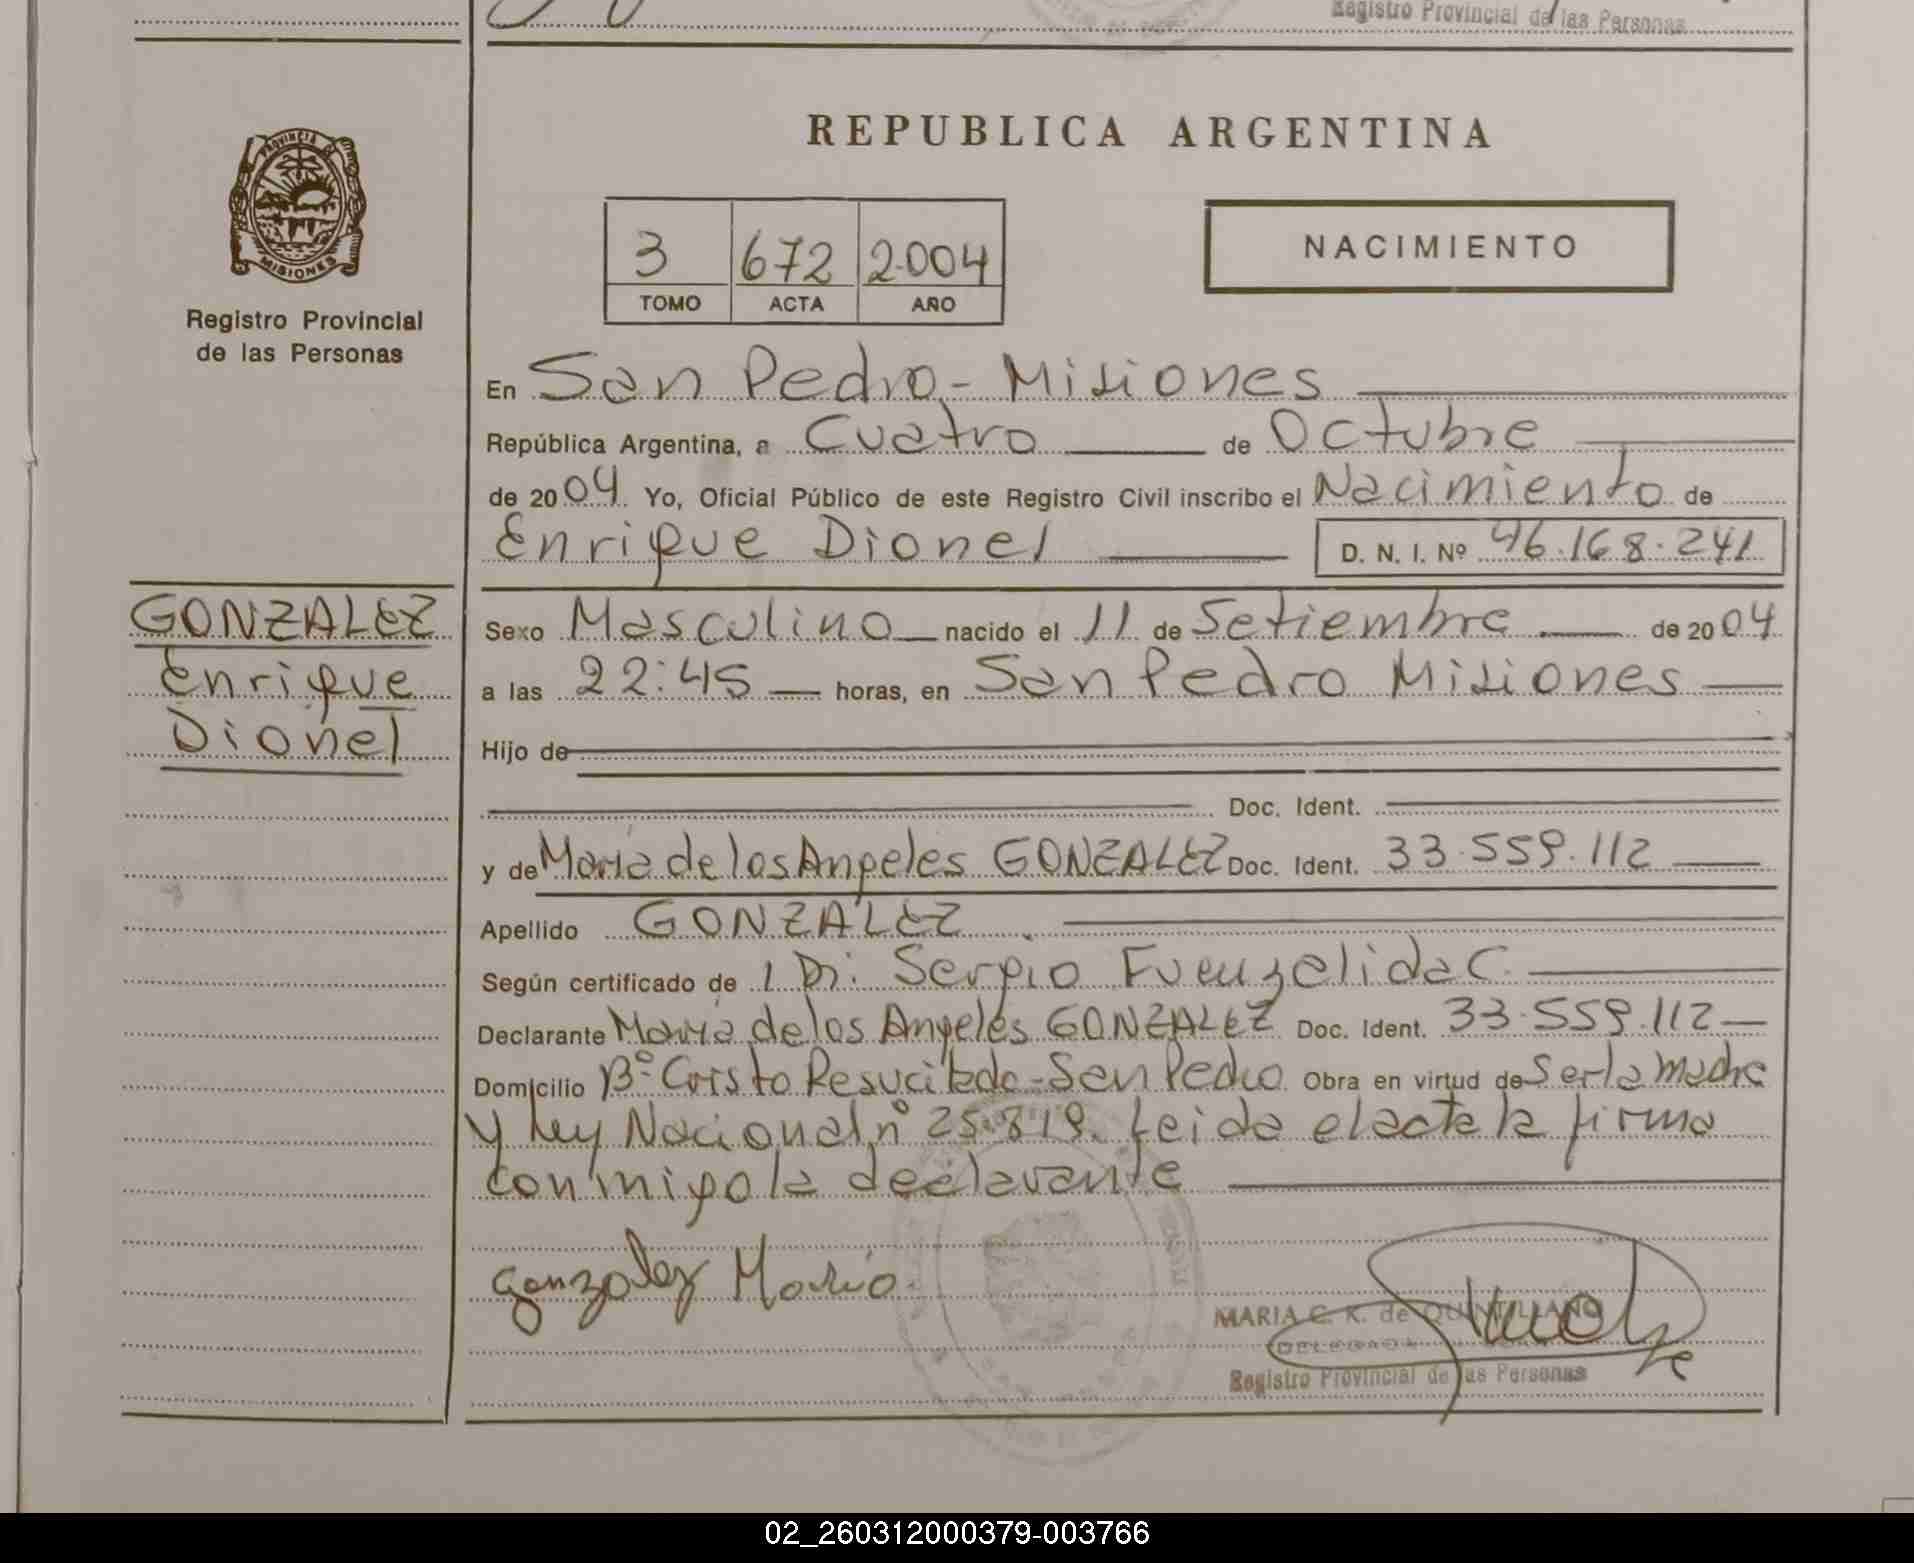 Registro Provincial de las Personas
PROVINCIA
MISIONES
Registro Provincial
de las Personas
GONZALEZ
Enrique
Dionel
REPUBLICA ARGENTINA
3 672 2.004
TOMO ACTA AÑO
NACIMIENTO
En San Pedro - Misiones
República Argentina, a Cuatro de Octubre
de 2004 Yo, Oficial Público de este Registro Civil inscribo el Nacimiento de
Enrique Dionel D. N. I. Nº 46.168.241
Sexo Masculino nacido el 11 de Setiembre de 2004
a las 22:45 horas, en San Pedro Misiones
Hijo de
Doc. Ident.
y de Maria de los Angeles GONZALEZ Doc. Ident. 33.559.112
Apellido GONZALEZ
Según certificado de 1 Dr. Sergio Fuenzalida C.
Declarante Maria de los Angeles GONZALEZ Doc. Ident. 33.559.112
Domicilio Bº Cristo Resucitado - San Pedro Obra en virtud de Ser la Madre
y Ley Nacional nº 25.819. Leida el acta la firma
conmigo la declarante
Gonzalez Maria
MARIA C. K. de QUINTILLANO
DELEGADA
Registro Provincial de las Personas
02_260312000379-003766